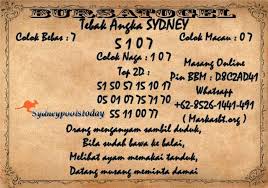 BURSATOGEL
Tebak Angka SYDNEY
Colok Bebas : 7
Colok Macau : 07
5 1 0 7
Colok Naga : 1 0 7
Top 2D :
51 50 57 15 10 17
05 01 07 75 71 70
55 11 00 77
Masang Online
Pin BBM : D8C2AD41
Whatsapp
+62-8526-1441-491
( Markasbt.org )
Sydneypoolstoday
Orang menganyam sambil duduk,
Bila sudah bawa ke balai,
Melihat ayam memakai tanduk,
Datang musang meminta damai